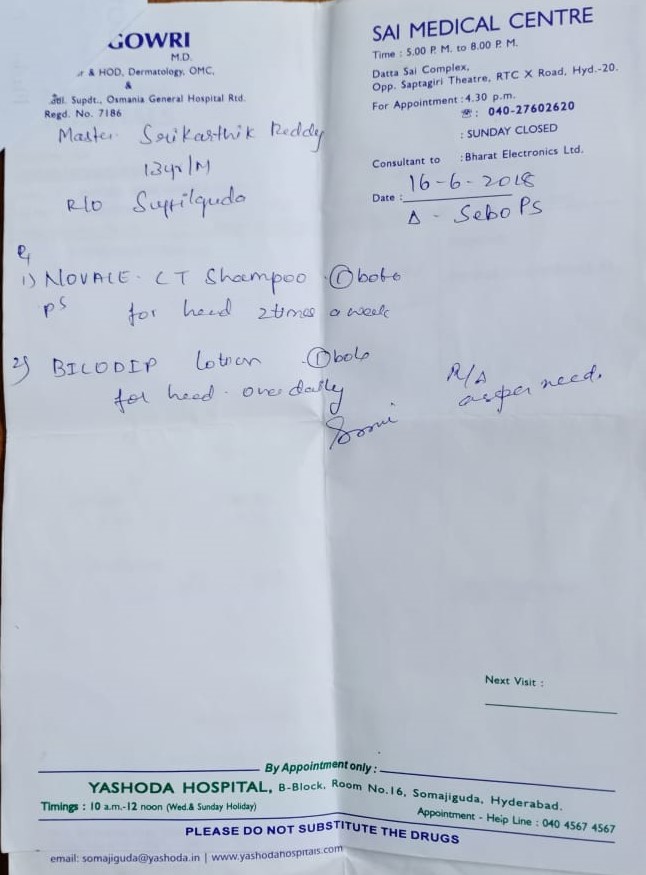 GOWRI
M.D.
r & HOD, Dermatology, OMC,
&
Supdt., Osmania General Hospital Rtd.
Regd. No. 7186
Master. Sri Karthik Reddy
13yr/M
R/o
SAI MEDICAL CENTRE
Time : 5.00 P. M. to 8.00 P. M.
Datta Sai Complex,
Opp. Saptagiri Theatre, RTC X Road, Hyd.-20.
For Appointment : 4.30 p.m.
☎: 040-27602620
: SUNDAY CLOSED
Consultant to : Bharat Electronics Ltd.
Date : 16-6-2018
Δ - Sebo PS
1) CT Shampoo ①
PS for head 2 times a week
2) Lotion ①
for head once daily
R/A
as per need.
Next Visit :
By Appointment only :
YASHODA HOSPITAL, B-Block, Room No.16, Somajiguda, Hyderabad.
Timings : 10 a.m.-12 noon (Wed.& Sunday Holiday)
Appointment - Help Line : 040 4567 4567
PLEASE DO NOT SUBSTITUTE THE DRUGS
email: somajiguda@yashoda.in | www.yashodahospitals.com